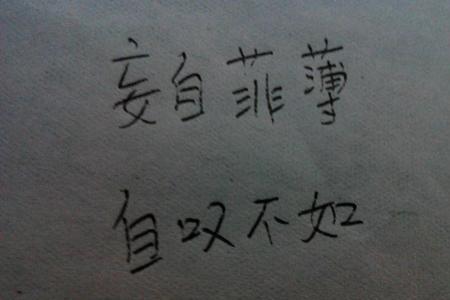 妄自菲薄
自叹不如